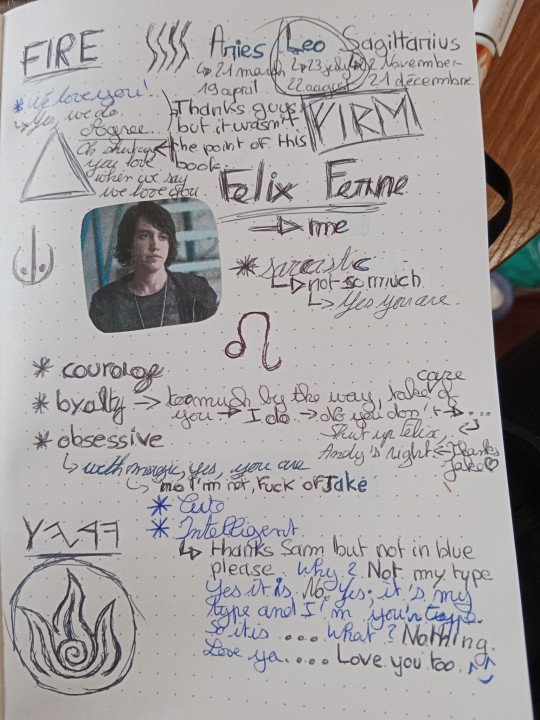 FIRE
Aries Leo Sagittarius
↳ 21 march ↳ 23 july ↳ 22 November
19 april 22 august 21 décembre
* We love you!
↳ Yes, we do.
Agree.
Oh shut up
you love
when we say
we love you.
Thanks guys
but it wasn't
the point of this
book.
VIRM
Felix Ferne
→ me
* sarcastic
↳ not so much
↳ Yes you are.
* courage
* loyalty → too much by the way, take care of
you → I do. → No you don't → ...
Shut up Felix,
Andy's right ← Thanks
Jake ♡
* obsessive
↳ with magic, yes, you are
↳ no I'm not, Fuck of Jake
* Cute
* Intelligent
↳ thanks Sam but not in blue
please. Why? Not my type
Yes it is. No. Yes, it's my
type and I'm your type.
So it is .... What? Nothing.
Love ya. .... Love you too.